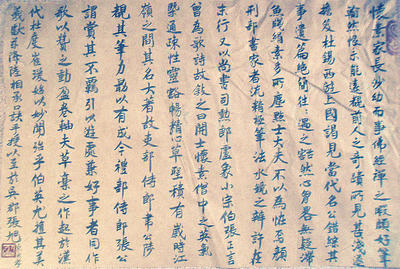 懷素家長沙幼而事佛經禪之暇頗好筆
翰然恨未能遠覩前人之奇蹟所見甚淺遂
擔笈杖錫西遊上國謁見當代名公錯綜其
事遺篇絕簡往往遇之豁然心胸略無疑滯
魚牋絹素多所塵點士大夫不以為怪焉顏
刑部書家者流精極筆法水鏡之辯許在
末行又以尚書司勳郎盧象小宗伯張正言
曾為歌詩故敘之曰開士懷素僧中之英氣
槩通疎性靈豁暢精心草聖積有歲時江
嶺之間其名大著故吏部侍郎韋公陟
覩其筆力勗以有成今禮部侍郎張公
謂賞其不羈引以遊處兼好事者同作
歌以贊之動盈卷軸夫草藁之作起於漢
代杜度崔瑗始以妙聞迨乎伯英尤擅其美
羲獻茲降虞陸相承口訣手授以至於吳郡張旭